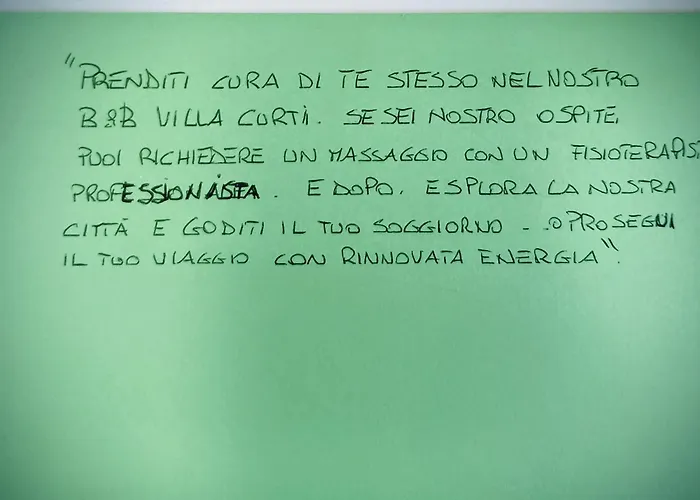 "PRENDITI CURA DI TE STESSO NEL NOSTRO
B&B VILLA CURTI. SE SEI NOSTRO OSPITE,
PUOI RICHIEDERE UN MASSAGGIO CON UN FISIOTERAPIS
PROFESSIONISTA. E DOPO, ESPLORA LA NOSTRA
CITTÀ E GODITI IL TUO SOGGIORNO - O PROSEGUI
IL TUO VIAGGIO CON RINNOVATA ENERGIA".